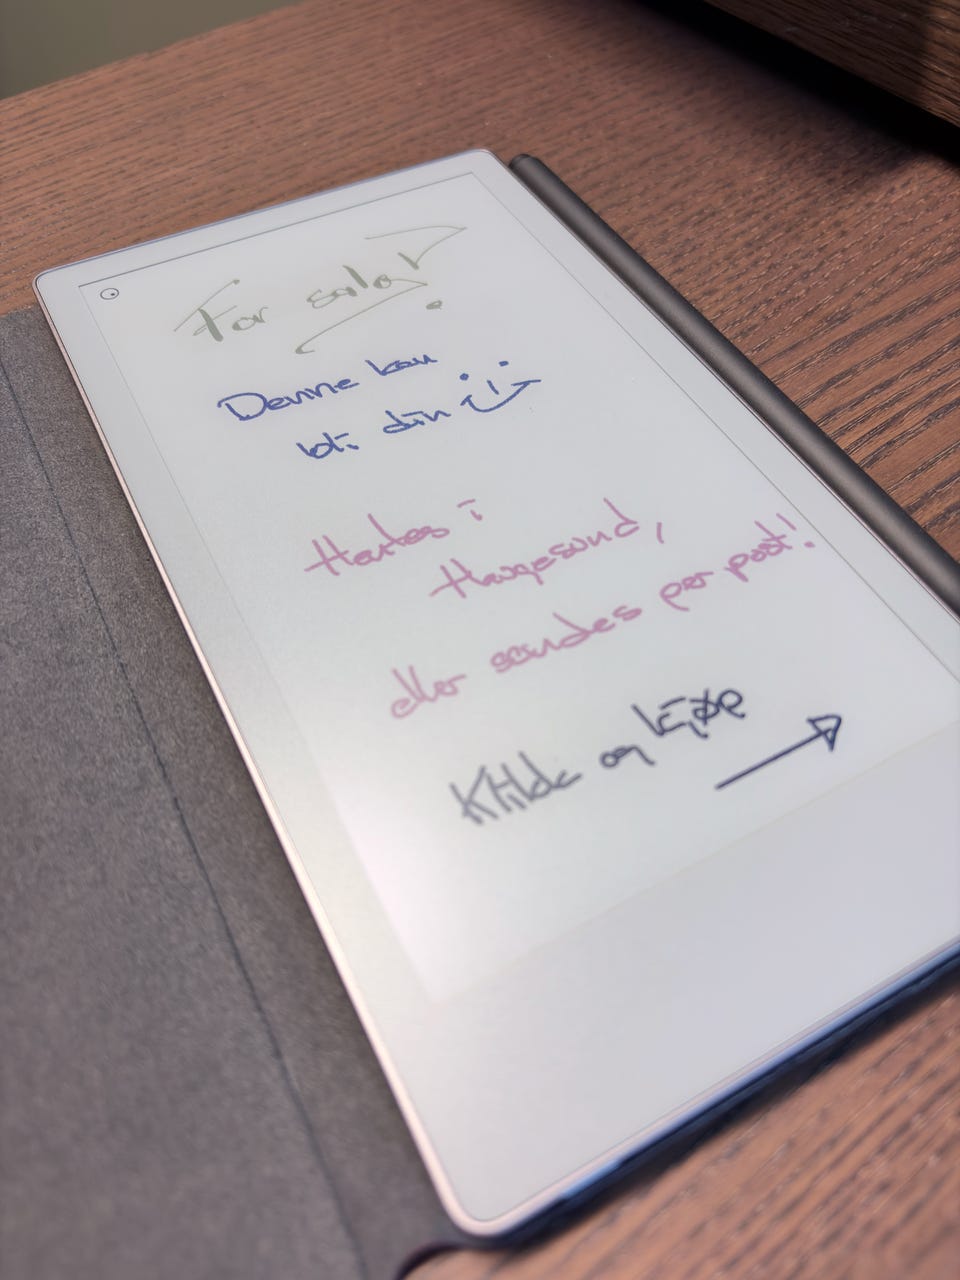 For salg!
Denne kan
bli din :)
Hentes i
Haugesund,
eller sendes per post!
Klikk og kjøp